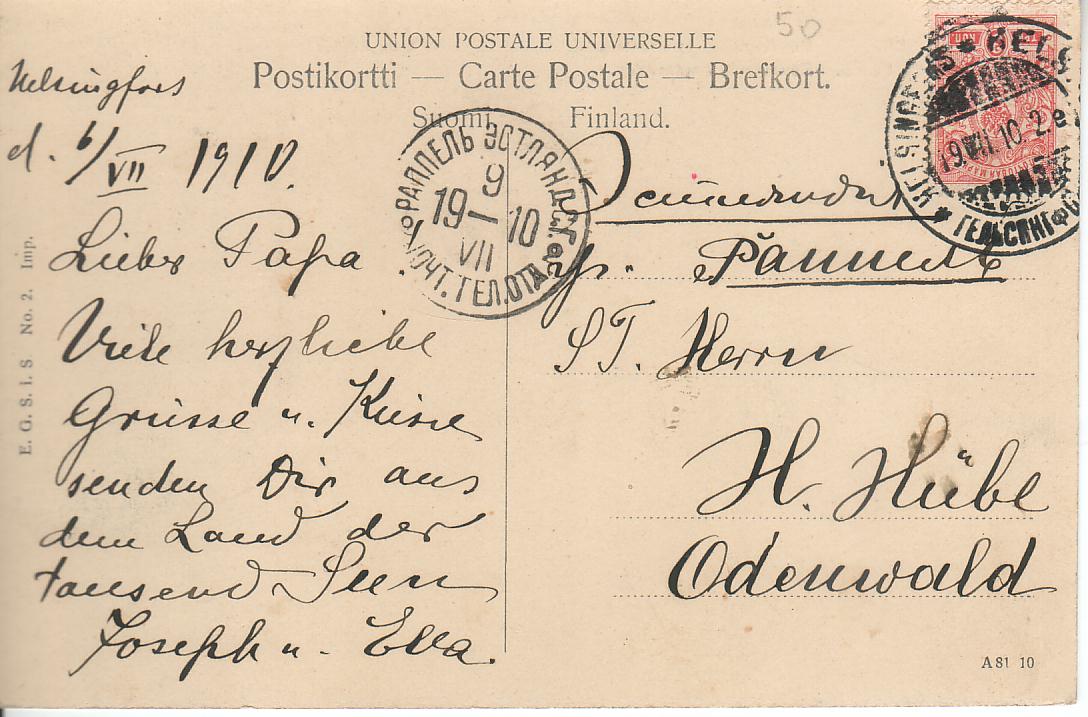 50
UNION POSTALE UNIVERSELLE
Postikortti — Carte Postale — Brefkort.
Suomi Finland.
Helsingfors
d. 6/VII 1910.
Lieber Papa
Viele herzliebe
Grüsse u. Küsse
senden Dir aus
dem Land der
tausend Seen
Joseph u. Ella.
РАППЕЛЬ ЭСТЛЯНДС.Г.
9
19 — 10
VII
ПОЧТ. ТЕЛ. ОТД.
HELSINGFORS
ГЕЛЬСИНГФ
Эстляндія
Раппель
ST. Herrn
H. Hübe
Odenwald
E. G. S. i. S No. 2. Imp.
A 81 10